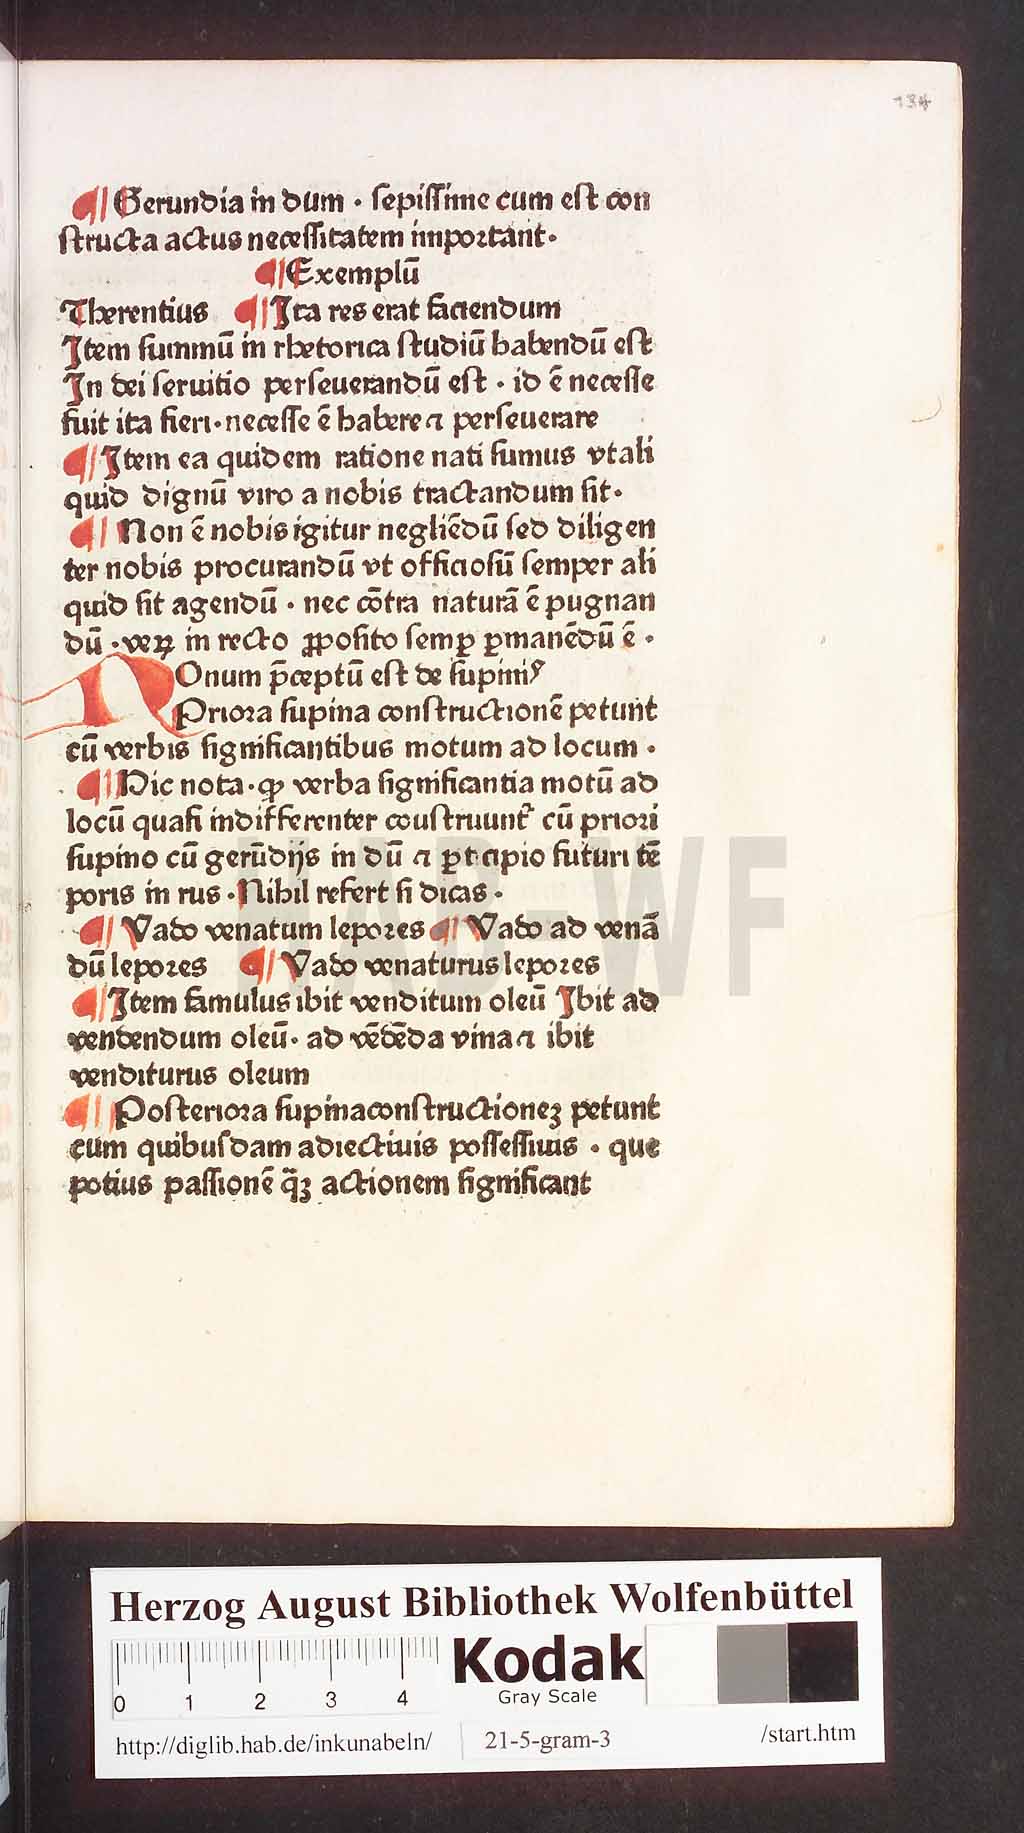 134
¶ Gerundia in dum · sepiſſime cum eſt con
ſtructa actus neceſſitatem important·
¶ Exemplū
Therentius ¶ Ita res erat faciendum
Item ſummū in rhetorica ſtudiū habendū eſt
In dei ſeruitio perſeuerandū eſt · id ē neceſſe
fuit ita fieri· neceſſe ē habere ⁊ perſeuerare
¶ Item ea quidem ratione nati ſumus vt ali
quid dignū viro a nobis tractandum ſit·
¶ Non ē nobis igitur negliēdū ſed diligen
ter nobis procurandū vt officioſū ſemper ali
quid ſit agendū · nec cōtra naturā ē pugnan
dū · veꝝ in recto ꝓpoſito ſemꝑ ꝑmanēdū ē ·
NOnum p̄ceptū eſt de ſupiniꝰ
Priora ſupina conſtructionē petunt
cū verbis ſignificantibus motum ad locum ·
¶ Hic nota· ꝙ verba ſignificantia motū ad
locū quaſi indifferenter couſtruunt᷑ cū priori
ſupino cū gerūdijs in dū ⁊ ꝑticipio futuri tē
poris in rus · Nihil refert ſi dicas ·
¶ Vado venatum lepores ¶ Vado ad venā
dū lepores ¶ Vado venaturus lepores
¶ Item famulus ibit venditum oleū Ibit ad
vendendum oleū· ad vēdēda vina ⁊ ibit
venditurus oleum
¶ Poſteriora ſupina conſtructioneꝫ petunt
cum quibuſdam adiectiuis poſſeſſiuis · que
potius paſſionē q̄ꝫ actionem ſignificant
HAB-WF
Herzog August Bibliothek Wolfenbüttel
0 1 2 3 4
Kodak
Gray Scale
http://diglib.hab.de/inkunabeln/ 21-5-gram-3 /start.htm